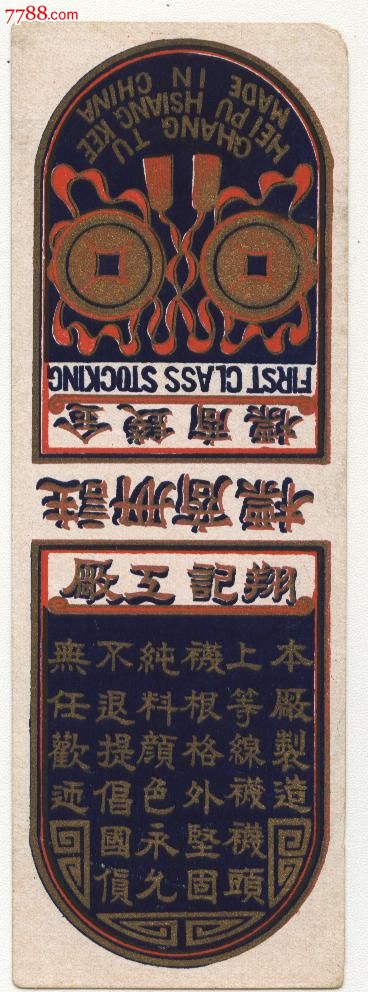 7788.com
CHANG TU KEE
HEI PU HSIANG
MADE IN CHINA
FIRST CLASS STOCKING
金錢商標
註册商標
翔記工廠
本廠製造
上等線襪襪頭
襪根格外堅固
純料顔色永允
不退提倡國貨
無任歡迎